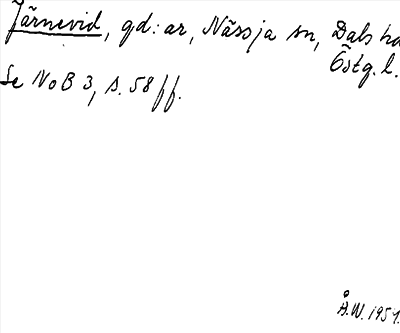 Järnevid, gd:ar, Nässja sn, Dals hd
Östg. l.
Se NoB 3, s. 58 ff.
Å.W. 1951.